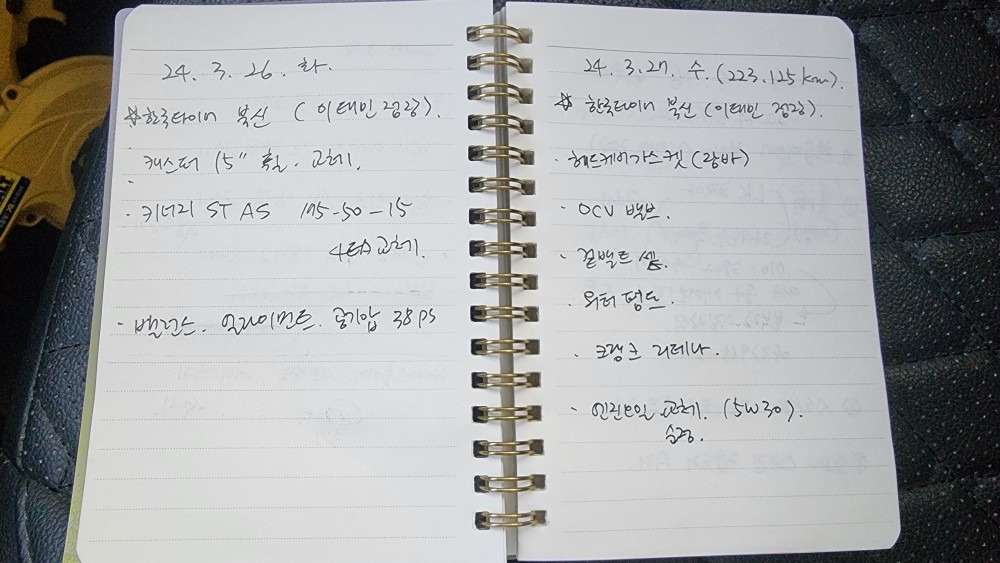 24. 3. 26. 화.
* 한국타이어 북신 (이태인 점장).
캐스퍼 15" 휠. 교체.
· 키너지 ST AS 175-50-15
4EA 교체.
· 밸런스. 얼라이먼트. 공기압 38 PS
24. 3. 27. 수. (223.125 km).
* 한국타이어 북신 (이태인 점장).
· 헤드케이가스켓 (잠바)
· OCV 밸브.
· 겉벨트 셋.
· 워터 펌프.
· 크랭크 리테나.
· 엔진오일 교체. (5W30).
순정.